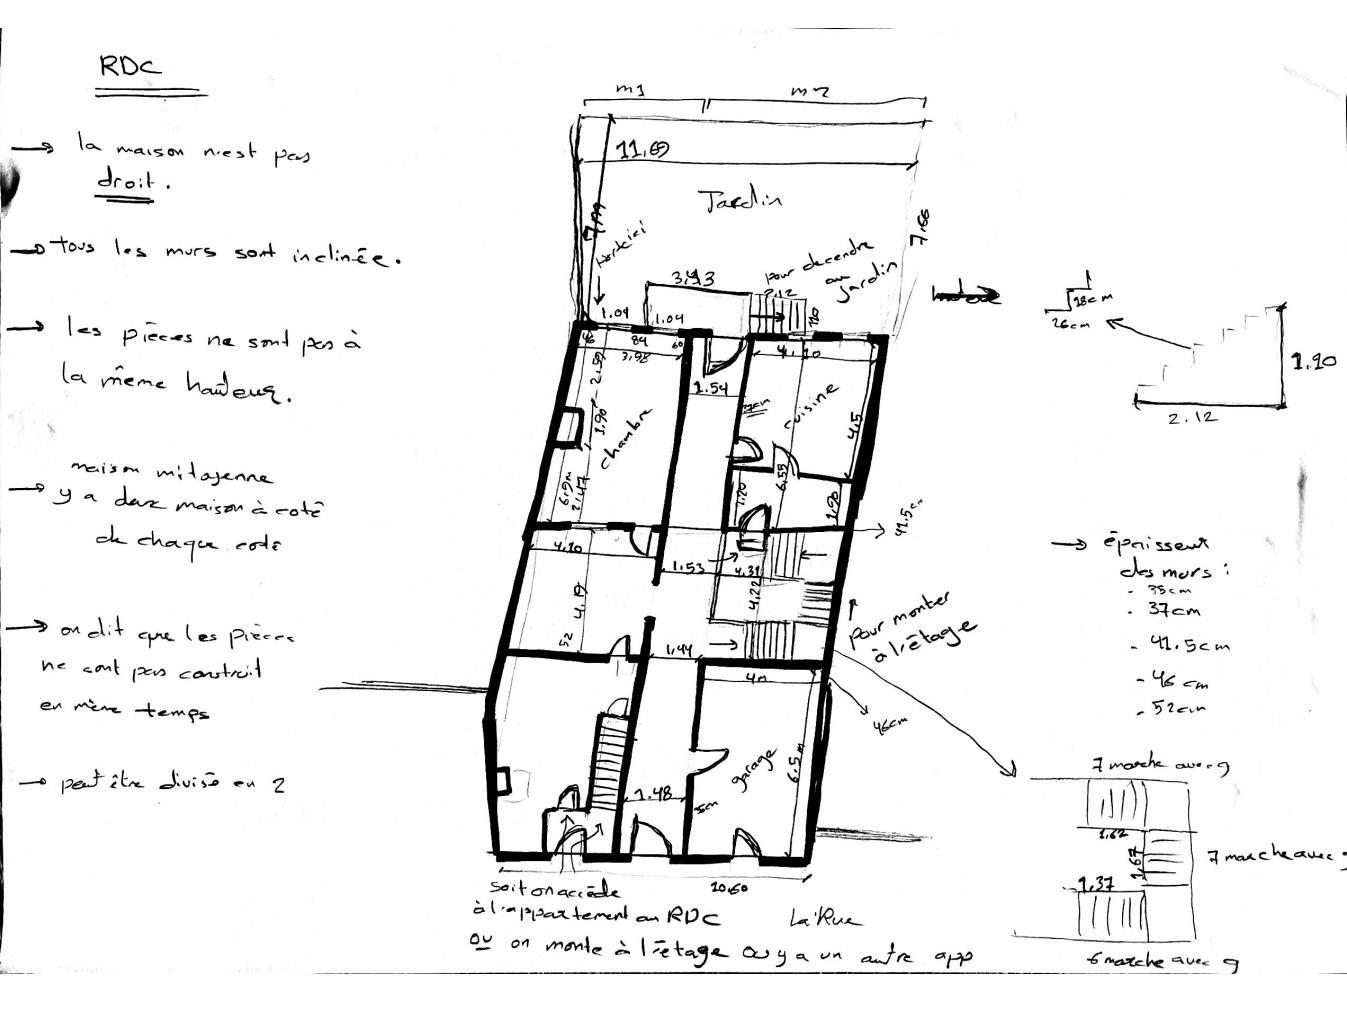 RDC
→ la maison n'est pas
droit.
→ tous les murs sont inclinée.
→ les pièces ne sont pas à
la même hauteur.
maison mitoyenne
→ y a deux maison à coté
de chaque coté
→ on dit que les pièces
ne sont pas construit
en même temps
→ peut être divisé en 2
m1
m2
11,69
Jardin
7,66
3,43
pour decendre
au
jardin
2,12
1.04
1.04
46
84
60
3,98
2.59
1.90
chambre
6.9m
2.47
1.54
4,10
cuisine
4.5
6.55
1.20
1.90
41.5cm
4.10
4.19
52
1.53
4.31
4.22
pour monter
à l'étage
1.44
4m
46cm
garage
6.5m
1.48
10,60
soit on accède
à l'appartement au RDC
La Rue
ou on monte à l'étage ou y a un autre app
18cm
26cm
1.10
2.12
→ épaisseur
des murs :
- 35cm
- 37cm
- 41.5cm
- 46 cm
- 52cm
7 marche avec 9
1,62
1,67
7 marche avec 9
1,37
6 marche avec 9